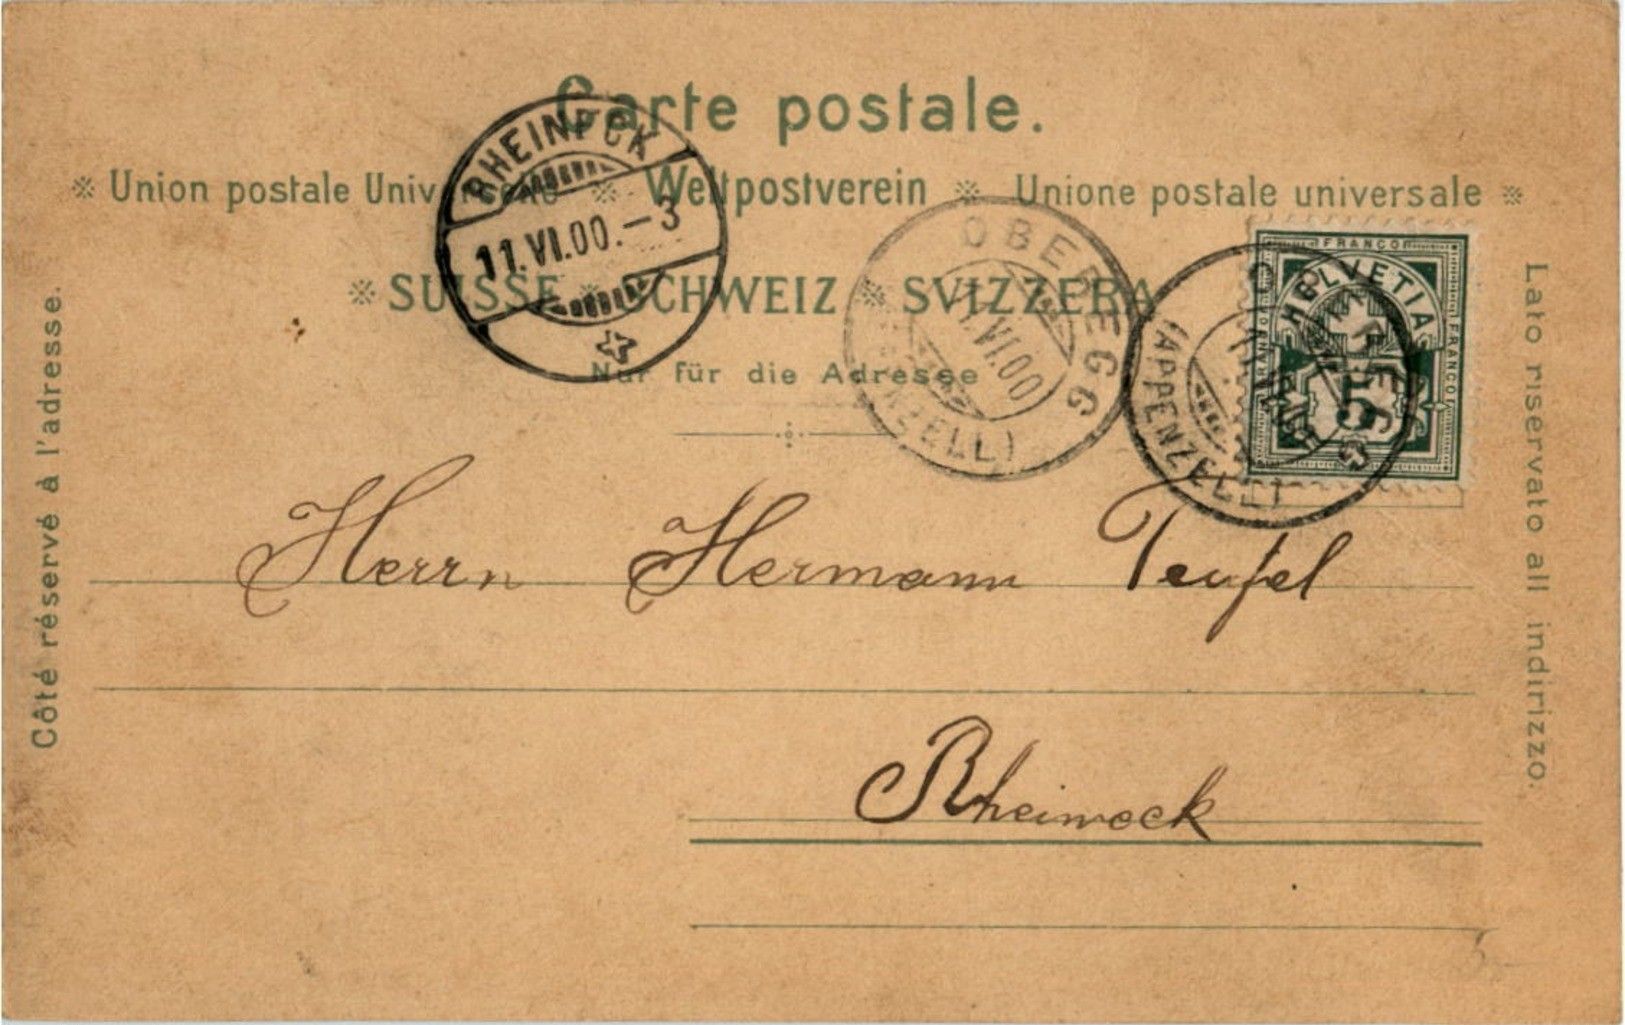 Carte postale.
※ Union postale Universelle ※ Weltpostverein ※ Unione postale universale ※
※ SUISSE ※ SCHWEIZ ※ SVIZZERA
Nur für die Adresse
Côté réservé à l'adresse.
Lato riservato all indirizzo.
RHEINECK
11.VI.00.-3
OBEREGG
11.VI.00
(APPENZELL)
OBEREGG
(APPENZELL)
FRANCO
HELVETIA
FRANCO
FRANCO
5
Herrn Hermann Teufel
Rheineck
5-